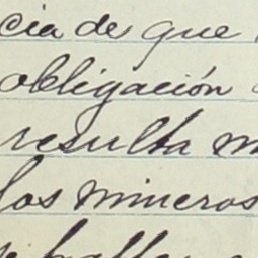 cia de que
obligación
resulta m
los mineros
se hallen